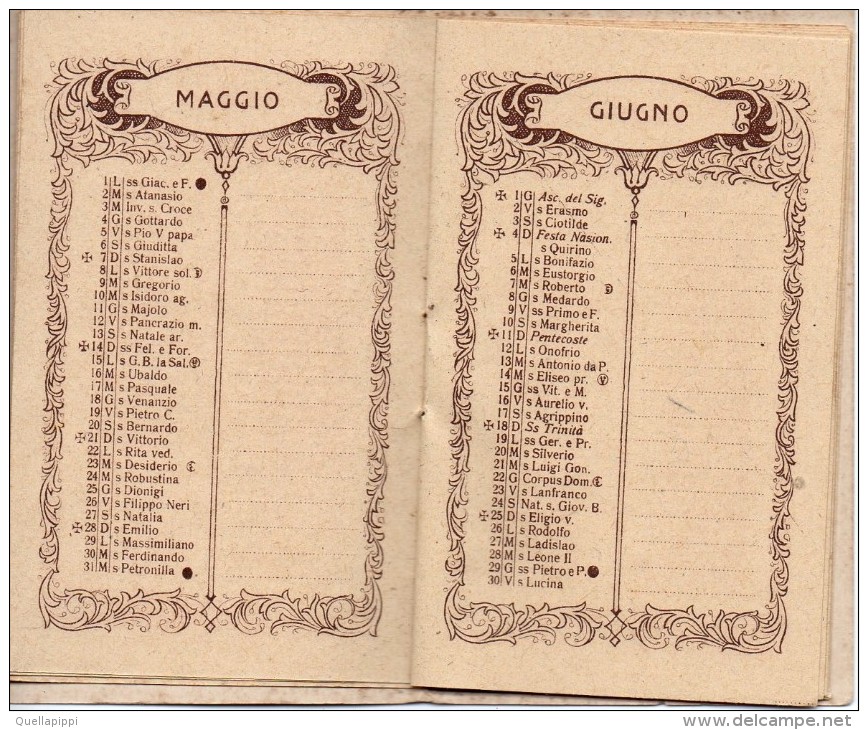 MAGGIO
1 L ss Giac. e F.
2 M s Atanasio
3 M Inv. s. Croce
4 G s Gottardo
5 V s Pio V papa
6 S s Giuditta
✠ 7 D s Stanislao
8 L s Vittore sol.
9 M s Gregorio
10 M s Isidoro ag.
11 G s Majolo
12 V s Pancrazio m.
13 S s Natale ar.
✠ 14 D ss Fel. e For.
15 L s G.B. la Sal.
16 M s Ubaldo
17 M s Pasquale
18 G s Venanzio
19 V s Pietro C.
20 S s Bernardo
✠ 21 D s Vittorio
22 L s Rita ved.
23 M s Desiderio
24 M s Robustina
25 G s Dionigi
26 V s Filippo Neri
27 S s Natalia
✠ 28 D s Emilio
29 L s Massimiliano
30 M s Ferdinando
31 M s Petronilla
GIUGNO
✠ 1 G Asc. del Sig.
2 V s Erasmo
3 S s Clotilde
✠ 4 D Festa Nasion.
s Quirino
5 L s Bonifazio
6 M s Eustorgio
7 M s Roberto
8 G s Medardo
9 V ss Primo e F.
10 S s Margherita
✠ 11 D Pentecoste
12 L s Onofrio
13 M s Antonio da P.
14 M s Eliseo pr.
15 G ss Vit. e M.
16 V s Aurelio v.
17 S s Agrippino
✠ 18 D Ss Trinità
19 L ss Ger. e Pr.
20 M s Silverio
21 M s Luigi Gon.
22 G Corpus Dom.
23 V s Lanfranco
24 S Nat. s. Giov. B.
✠ 25 D s Eligio v.
26 L s Rodolfo
27 M s Ladislao
28 M s Leone II
29 G ss Pietro e P.
30 V s Lucina
Quellapippi
delcampe.net